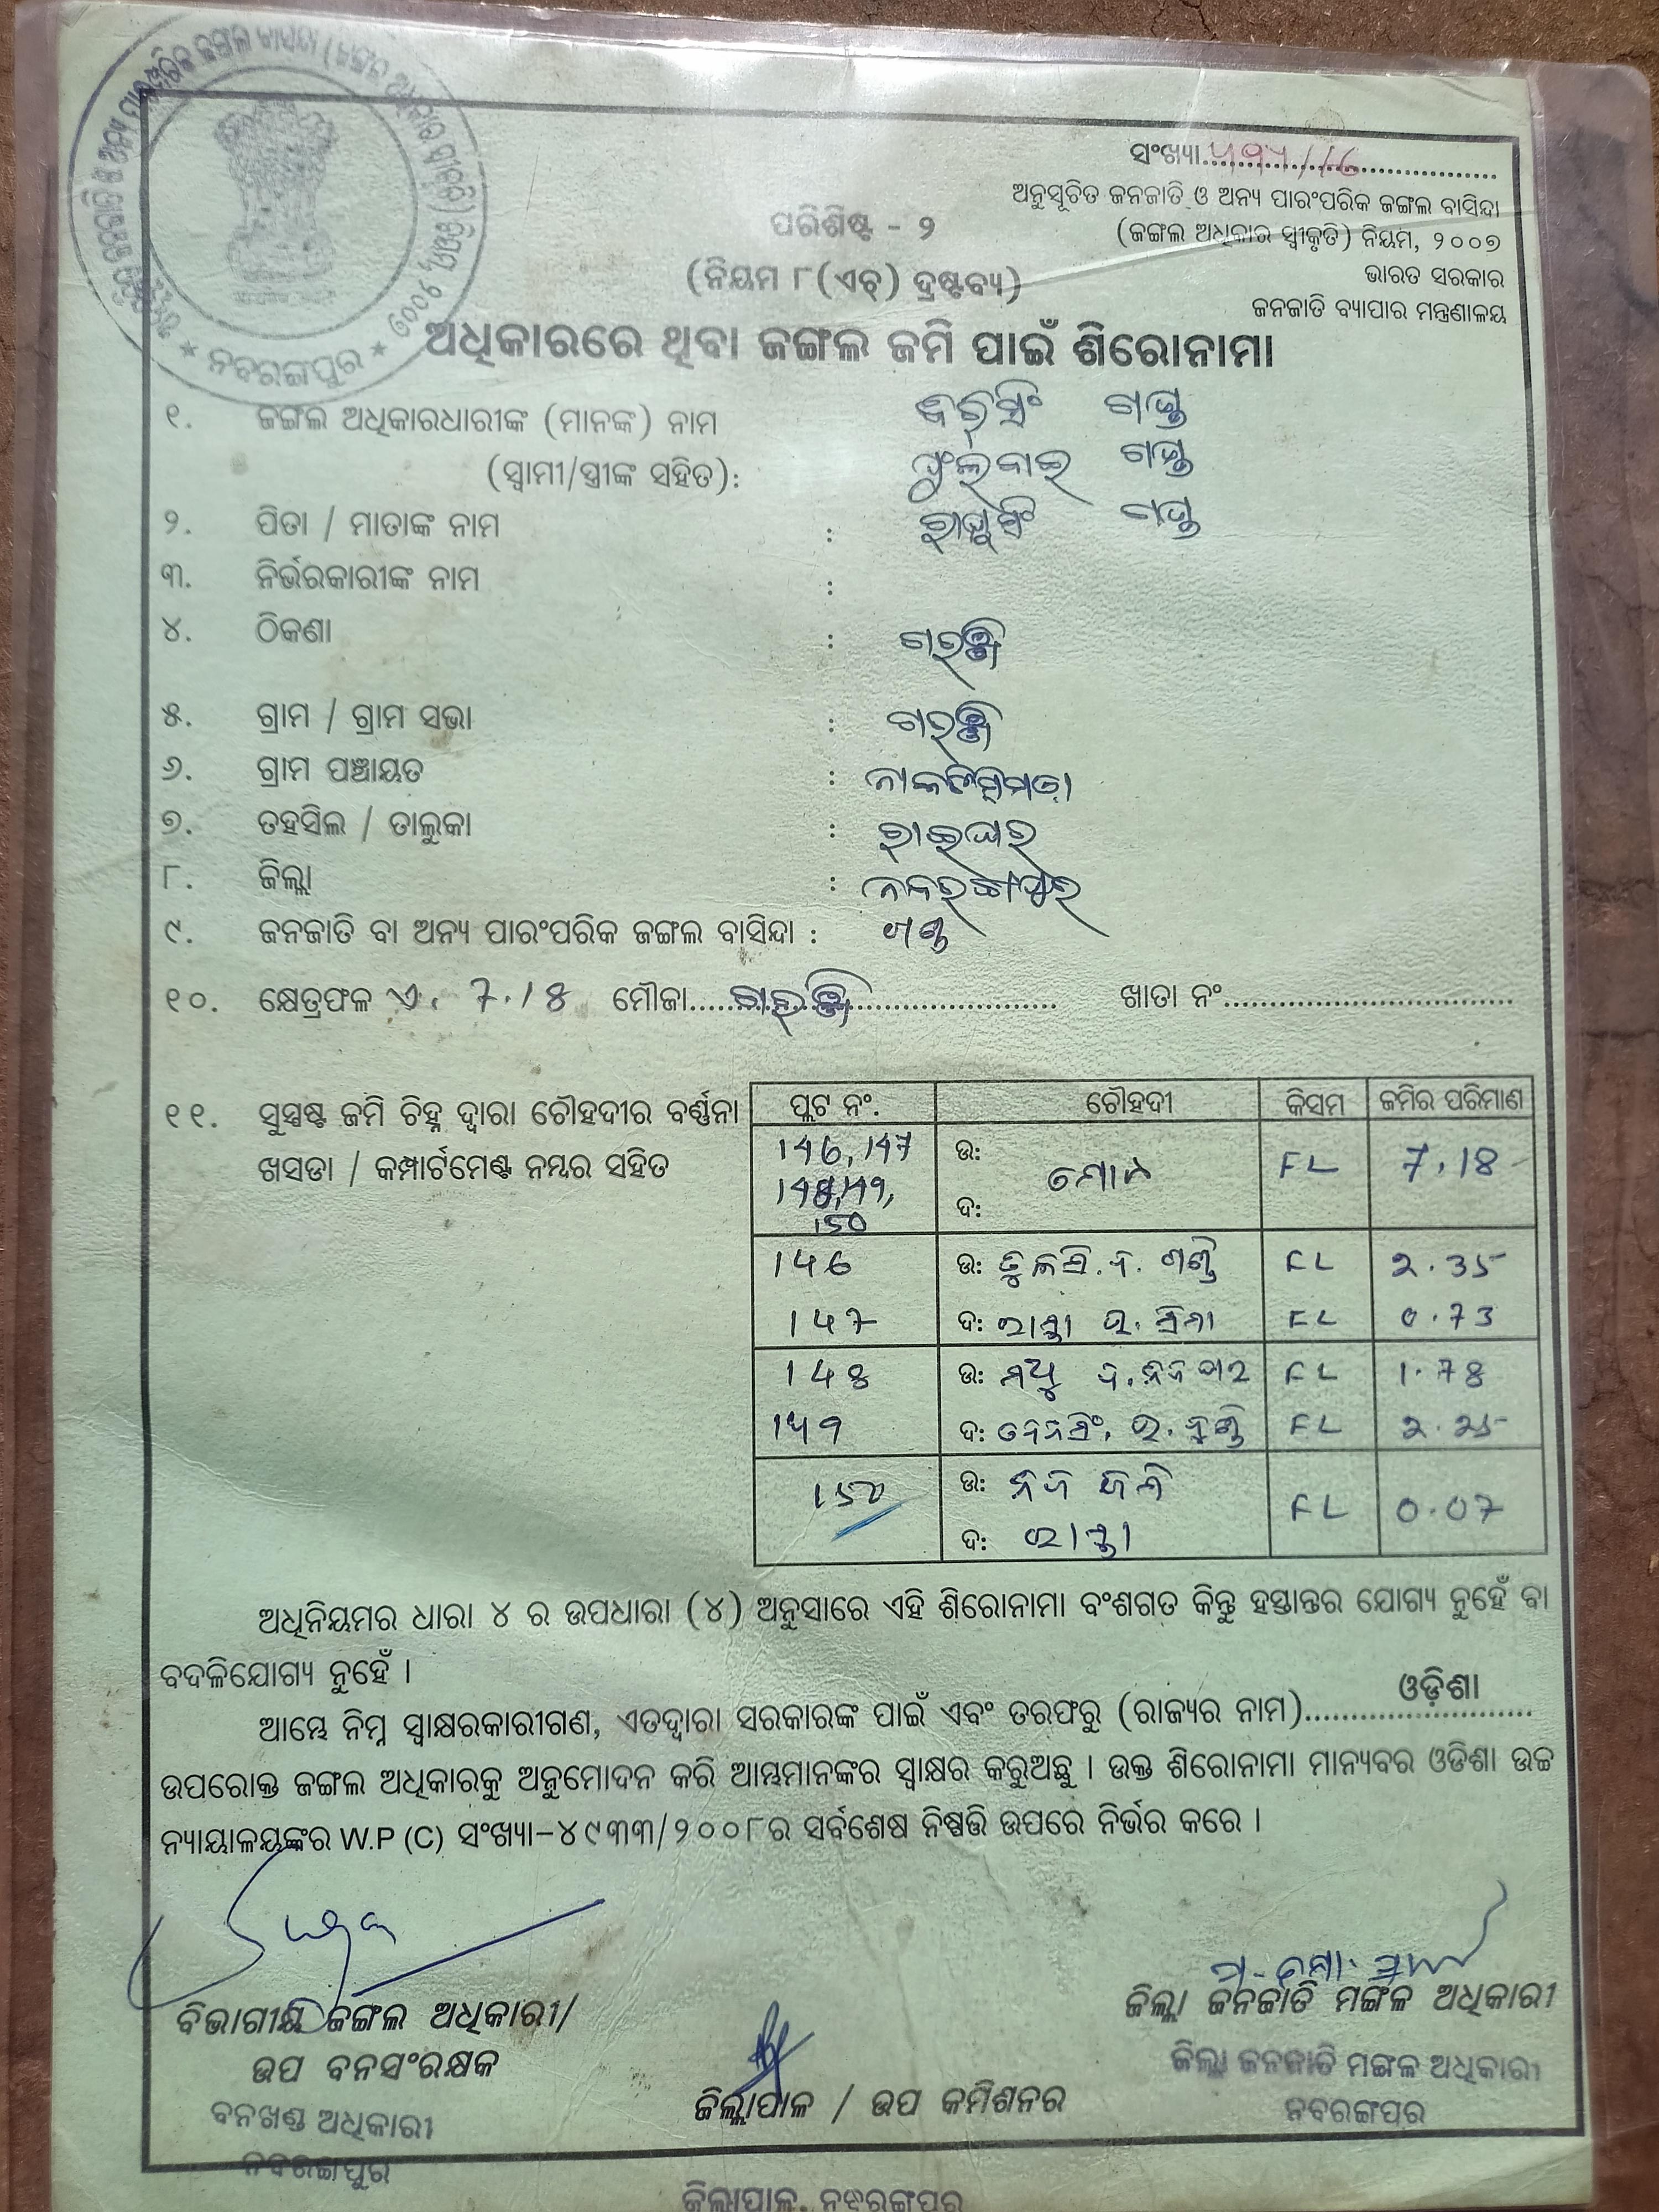 ସଂଖ୍ୟା
ଅନୁସୂଚିତ ଜନଜାତି ଓ ଅନ୍ୟ ପାରଂପରିକ ଜଙ୍ଗଲ ବାସିନ୍ଦା
(ଜଙ୍ଗଲ ଅଧିକାର ସ୍ୱୀକୃତି) ନିୟମ, ୨୦୦୭
ଭାରତ ସରକାର
ଜନଜାତି ବ୍ୟାପାର ମନ୍ତ୍ରଣାଳୟ
ପରିଶିଷ୍ଟ - ୨
(ନିୟମ ୮(ଏଚ୍) ଦ୍ରଷ୍ଟବ୍ୟ)
ନବରଙ୍ଗପୁର
ଅଧିକାରରେ ଥିବା ଜଙ୍ଗଲ ଜମି ପାଇଁ ଶିରୋନାମା
୧. ଜଙ୍ଗଲ ଅଧିକାରଧାରୀଙ୍କ (ମାନଙ୍କ) ନାମ
(ସ୍ୱାମୀ/ସ୍ତ୍ରୀଙ୍କ ସହିତ):
୨. ପିତା / ମାତାଙ୍କ ନାମ :
୩. ନିର୍ଭରକାରୀଙ୍କ ନାମ :
୪. ଠିକଣା :
୫. ଗ୍ରାମ / ଗ୍ରାମ ସଭା :
୬. ଗ୍ରାମ ପଞ୍ଚାୟତ :
୭. ତହସିଲ / ତାଲୁକା : ରାଇଘର
୮. ଜିଲ୍ଲା : ନବରଙ୍ଗପୁର
୯. ଜନଜାତି ବା ଅନ୍ୟ ପାରଂପରିକ ଜଙ୍ଗଲ ବାସିନ୍ଦା :
୧୦. କ୍ଷେତ୍ରଫଳ ଏ. 7.18 ମୌଜା ଖାତା ନଂ
୧୧. ସୁସ୍ପଷ୍ଟ ଜମି ଚିହ୍ନ ଦ୍ୱାରା ଚୌହଦୀର ବର୍ଣ୍ଣନା
ଖସଡା / କମ୍ପାର୍ଟମେଣ୍ଟ ନମ୍ବର ସହିତ
ପ୍ଲଟ ନଂ. ଚୌହଦୀ କିସମ ଜମିର ପରିମାଣ
146, 147 ଉ: FL 7.18
148, 149, ଦ:
150
146 ଉ: FL 2.35
147 ଦ: ରାସ୍ତା FL 0.73
148 ଉ: FL 1.78
149 ଦ: FL 2.25
150 ଉ: FL 0.07
ଦ: ରାସ୍ତା
ଅଧିନିୟମର ଧାରା ୪ ର ଉପଧାରା (୪) ଅନୁସାରେ ଏହି ଶିରୋନାମା ବଂଶଗତ କିନ୍ତୁ ହସ୍ତାନ୍ତର ଯୋଗ୍ୟ ନୁହେଁ ବା
ବଦଳିଯୋଗ୍ୟ ନୁହେଁ ।
ଆମ୍ଭେ ନିମ୍ନ ସ୍ୱାକ୍ଷରକାରୀଗଣ, ଏତଦ୍ୱାରା ସରକାରଙ୍କ ପାଇଁ ଏବଂ ତରଫରୁ (ରାଜ୍ୟର ନାମ) ଓଡ଼ିଶା
ଉପରୋକ୍ତ ଜଙ୍ଗଲ ଅଧିକାରକୁ ଅନୁମୋଦନ କରି ଆମ୍ଭମାନଙ୍କର ସ୍ୱାକ୍ଷର କରୁଅଛୁ । ଉକ୍ତ ଶିରୋନାମା ମାନ୍ୟବର ଓଡିଶା ଉଚ୍ଚ
ନ୍ୟାୟାଳୟଙ୍କର W.P (C) ସଂଖ୍ୟା-୪୯୩୩/୨୦୦୮ର ସର୍ବଶେଷ ନିଷ୍ପତ୍ତି ଉପରେ ନିର୍ଭର କରେ ।
ବିଭାଗୀୟ ଜଙ୍ଗଲ ଅଧିକାରୀ/
ଉପ ବନସଂରକ୍ଷକ
ବନଖଣ୍ଡ ଅଧିକାରୀ
ନବରଙ୍ଗପୁର
ଜିଲ୍ଲାପାଳ / ଉପ କମିଶନର
ଜିଲ୍ଲାପାଳ, ନବରଙ୍ଗପୁର
ଜିଲ୍ଲା ଜନଜାତି ମଙ୍ଗଳ ଅଧିକାରୀ
ଜିଲ୍ଲା ଜନଜାତି ମଙ୍ଗଳ ଅଧିକାରୀ
ନବରଙ୍ଗପୁର